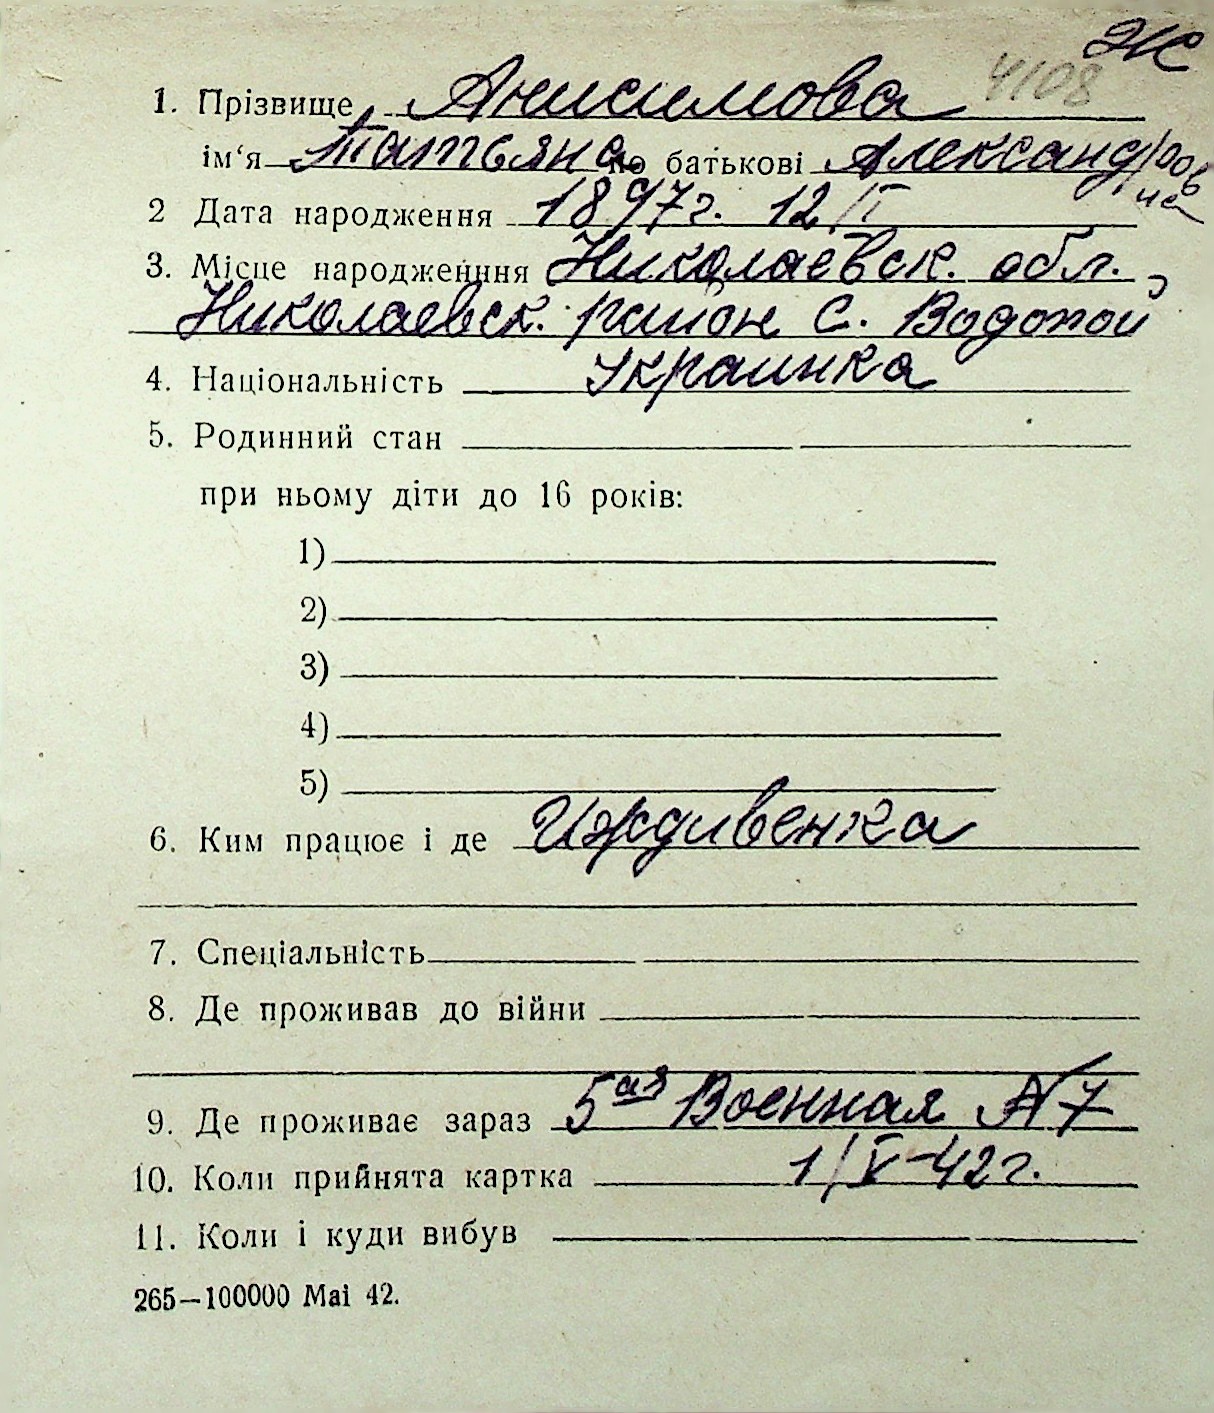 Ж
4108
1. Прізвище Анисимова
ім‘я Татьяна по батькові Александров
на
2 Дата народження 1897г. 12/I
3. Місце народженння Николаевск. обл.,
Николаевск. район с. Водопой
4. Національність Украинка
5. Родинний стан
при ньому діти до 16 років:
1)
2)
3)
4)
5)
6. Ким працює і де Иждивенка
7. Спеціальність
8. Де проживав до війни
9. Де проживає зараз 5ая Военная № 7
10. Коли прийнята картка 1/V-42г.
11. Коли і куди вибув
265—100000 Mai 42.